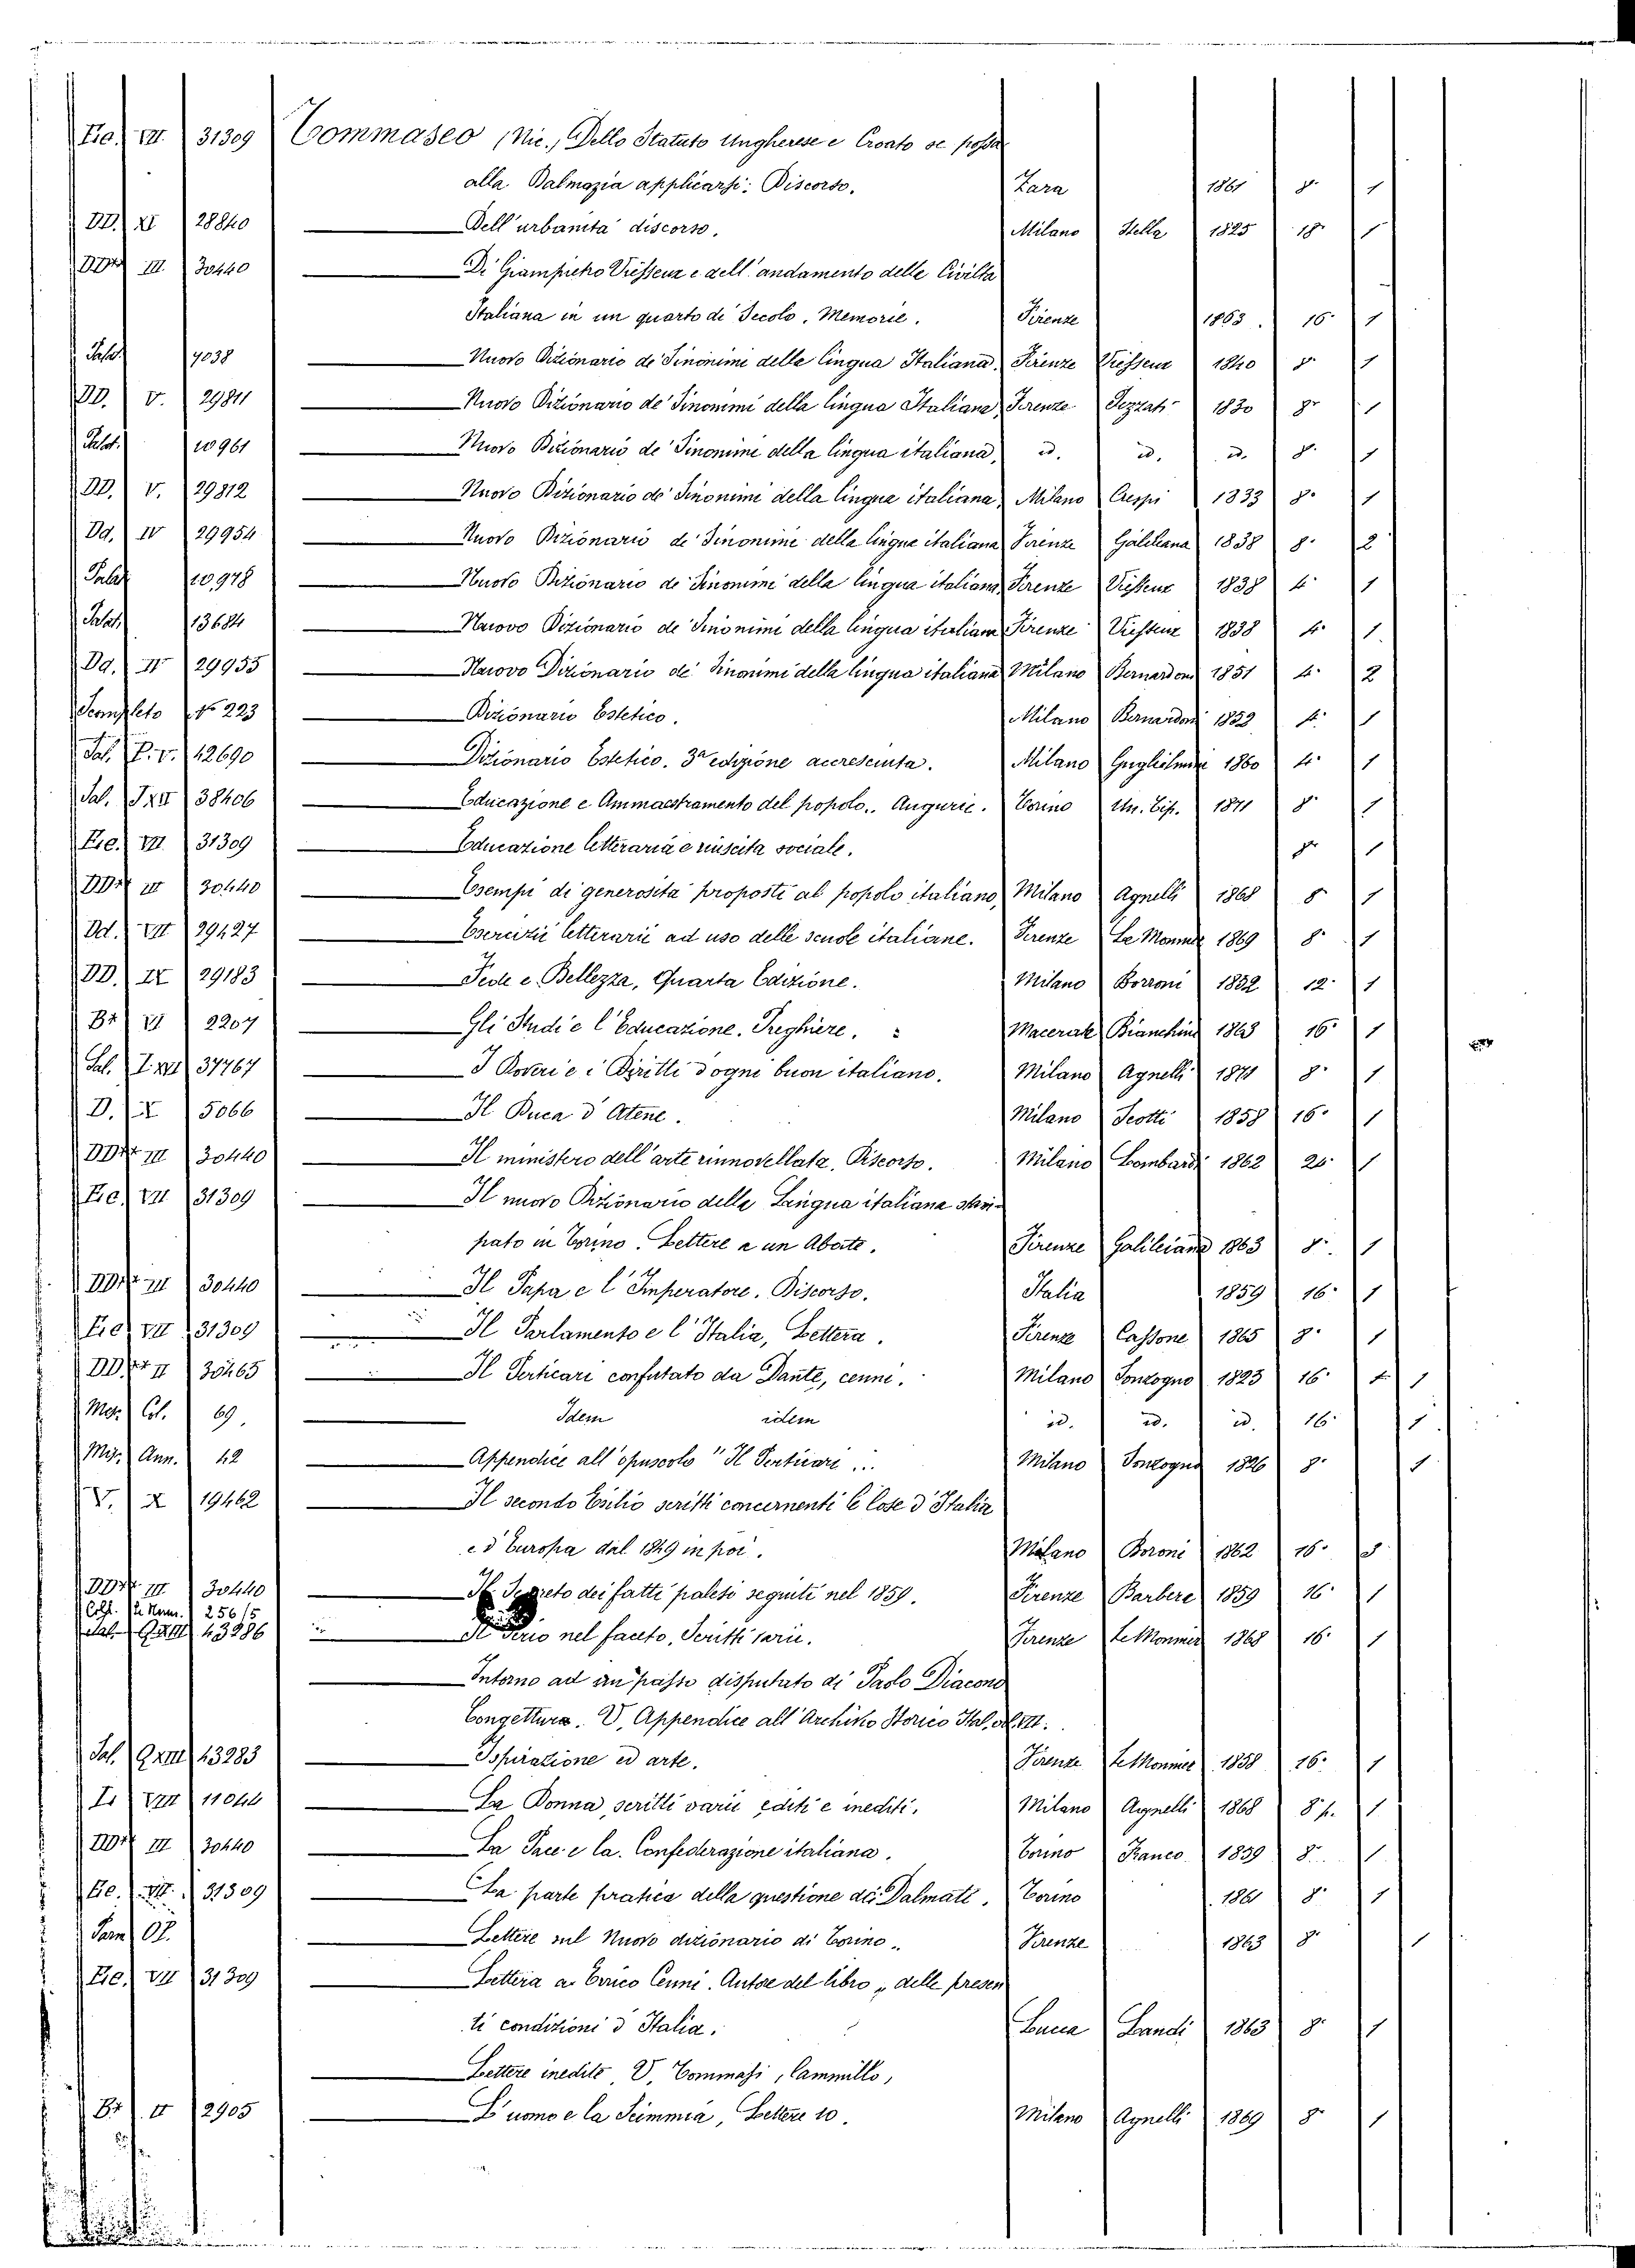 VII. 31309 Tommaseo (Nic., Dello Statuto Ungherese e Croato se possa
alla Dalmazia applicarsi: Discorso. Zara 1861 8° 1
DD. XI 28840 Dell'urbanità discorso. Milano Stella 1825 18° 1
III. 30440 Di Giampietro Viesseux e dell'andamento delle Civiltà
Italiana in un quarto di Secolo. Memorie. Firenze 1863. 16° 1
Palat. 7038 Nuovo Dizionario de' Sinonimi della lingua Italiana, Firenze Viesseux 1840 8° 1
DD. V. 29811 Nuovo Dizionario de' Sinonimi della lingua Italiana, Firenze Pezzati 1830 8° 1
Palat. 10961 Nuovo Dizionario de' Sinonimi della lingua italiana, id. id. id. 8° 1
DD. V. 29812 Nuovo Dizionario de' Sinonimi della lingua italiana, Milano Crespi 1833 8° 1
Dd. IV 29954 Nuovo Dizionario de' Sinonimi della lingua italiana Firenze Galileiana 1838 8° 2
Palat. 10,978 Nuovo Dizionario de' Sinonimi della lingua italiana, Firenze Viesseux 1838 4° 1
Palat. 13684 Nuovo Dizionario de' Sinonimi della lingua italiana Firenze Viesseux 1838 4° 1
Dd. IV 29955 Nuovo Dizionario de' Sinonimi della lingua italiana Milano Bernardoni 1851 4° 2
Scompleto N° 223 Dizionario Estetico. Milano Bernardoni 1852 4° 1
Sal. P. V. 12690 Dizionario Estetico. 3ª edizione accresciuta. Milano Guglielmini 1860 4° 1
Sal. 38406 Educazione e Ammaestramento del popolo.. Augurii. Torino Un. Tip. 1871 8° 1
VII. 31309 Educazione letteraria e riuscita sociale. 8° 1
III 30440 Esempi di generosità proposti al popolo italiano, Milano Agnelli 1868 8° 1
Dd. VII 29427 Esercizii letterarii ad uso delle scuole italiane. Firenze Le Monnier 1869 8° 1
DD. IX 29183 Fede e Bellezza, Quarta Edizione. Milano Borroni 1852 12° 1
2207 Gli Studi e l'Educazione. Preghiere. Macerata Bianchini 1863 16° 1
Sal. 37767 I Doveri e i Diritti d'ogni buon italiano. Milano Agnelli 1871 8° 1
D. X 5066 Il Duca d'Atene. Milano Scotti 1858 16° 1
III 30440 Il ministero dell'arte rinnovellata, Discorso. Milano Lombardi 1862 24° 1
VII 31309 Il nuovo Dizionario della Lingua italiana stam-
pato in Torino. Lettere a un Abate. Firenze Galileiana 1863 8° 1
III 30440 Il Papa e l'Imperatore. Discorso. Italia 1859 16° 1
VII 31309 Il Parlamento e l'Italia, Lettera. Firenze Cassone 1865 8° 1
II 30465 Il Perticari confutato da Dante, cenni. Milano Sonzogno 1825 16° 1
Mis. Col. 69. Idem idem id. id. id. 16° 1
Mis. Ann. 42 Appendice all'opuscolo "Il Perticari... Milano Sonzogno 1826 8° 1
V. X 19462 Il secondo Esilio scritti concernenti le Cose d'Italia
e d'Europa dal 1849 in poi. Milano 1862 16° 3
III 30440 Il Segreto dei fatti palesi seguiti nel 1859. Firenze Barbera 1859 16° 1
256/5
43286 Il Serio nel faceto, Scritti varii. Firenze Le Monnier 1868 16° 1
Intorno ad un passo disputato di Paolo Diacono
Congettura. V. Appendice all'Archivio Storico Ital.
Sal. 43283 Ispirazione ed arte. Firenze Le Monnier 1858 16° 1
VIII 11044 La Donna, scritti varii editi e inediti. Milano Agnelli 1868 8° 1
III 30440 La Pace e la Confederazione italiana. Torino Franco 1859 8° 1
VII. 31309 La parte pratica della questione dei Dalmati. Torino 1861 8° 1
Lettere sul Nuovo dizionario di Torino. Firenze 1863 8° 1
VII 31309 Lettera a Enrico Cenni. Autore del libro „ delle presen
ti condizioni d'Italia. Lucca Landi 1863 8° 1
Lettere inedite V. Tommasi, Cammillo,
II 2905 L'uomo e la Scimmia, Lettere 10. Milano Agnelli 1869 8° 1